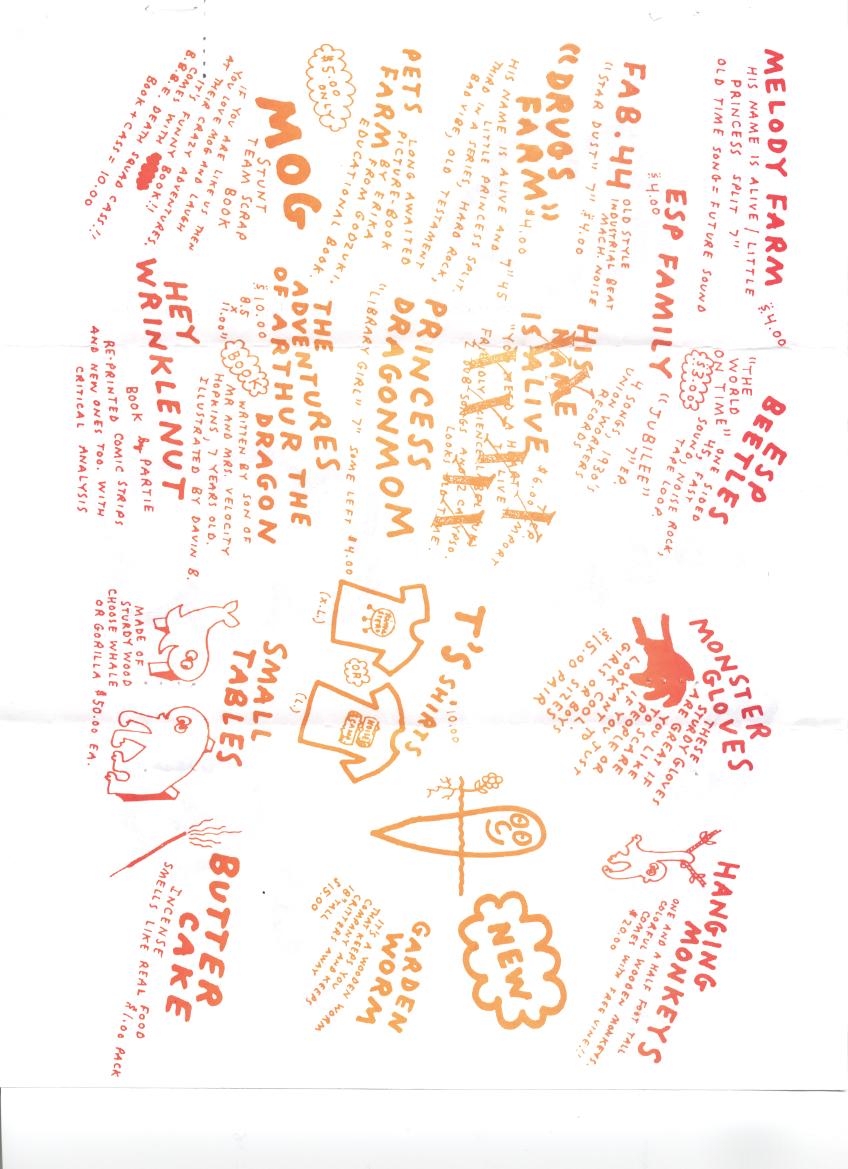 MELODY FARM $4.00
HIS NAME IS ALIVE / LITTLE
PRINCESS SPLIT 7"
OLD TIME SONG = FUTURE SOUND
ESP FAMILY "JUBILEE"
$4.00
4 SONGS, 7" EP.
UNION WORKERS, 1930'S
RECORDS
FAB.44 OLD STYLE
INDUSTRIAL BEAT
MACH. NOISE
"STAR DUST" 7" $4.00
"DRUGS
FARM" $4.00
HIS NAME IS ALIVE AND 7" 45
THIRD IN A SERIES, HARD ROCK,
LITTLE PRINCESS SPLIT.
BAD VIBE, OLD TESTAMENT
PETS LONG AWAITED
PICTURE-BOOK
FARM BY ERIKA
EDUCATIONAL BOOK.
FROM GODZUKI.
$5.00
ONLY
MOG
STUNT
TEAM SCRAP
BOOK
IF YOU ARE LIKE US THEN
YOU LOVE MOG AND LAUGH
AT THEIR CRAZY ADVENTURES.
IT'S FUNNY BOOK!!
COMES WITH
B.B.B.E. DEATH SQUAD CASS!!!
BOOK + CASS = 10.00
ESP
BEETLES
"THE
WORLD
ON TIME" ONE SIDED
45, FAST
SOUND, NOISE ROCK,
TAPE LOOP.
$3.00
HIS
NAME
IS ALIVE $6.00
IMPORT
PRINCESS
DRAGONMOM
"LIBRARY GIRL" 7" SOME LEFT $4.00
THE
ADVENTURES
OF ARTHUR THE
DRAGON
$10.00
8.5
X
11.00"
BOOK
WRITTEN BY SON OF
MR AND MRS. VELOCITY
HOPKINS, 7 YEARS OLD.
ILLUSTRATED BY DAVIN B.
HEY
WRINKLENUT
BOOK by PARTIE
RE-PRINTED COMIC STRIPS
AND NEW ONES TOO. WITH
CRITICAL ANALYSIS
MONSTER
GLOVES
THESE
STURDY GLOVES
ARE GREAT IF
YOU LIKE
TO SCARE
PEOPLE OR
IF YOU JUST
WANT TO
LOOK COOL.
GIRLS OR BOYS
SIZES
$15.00 PAIR
T'S SHIRTS $10.00
(X.L.)
OR
(L.)
SMALL
TABLES
MADE OF
STURDY WOOD
CHOOSE WHALE
OR GORILLA $50.00 EA.
HANGING
MONKEYS
ONE AND A HALF FOOT TALL
COLORFUL WOODEN MONKEYS.
COMES WITH FREE VINE!!!
$20.00
NEW
GARDEN
WORM
IT'S A WOODEN WORM
THAT KEEPS YOU
COMPANY AND KEEPS
CRITTERS AWAY
18" TALL
$15.00
BUTTER
CAKE
INCENSE
SMELLS LIKE REAL FOOD
$1.00 PACK